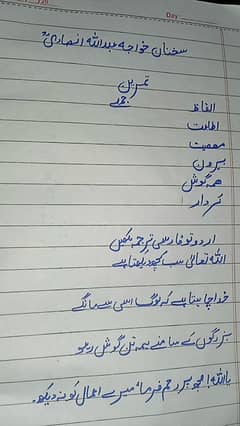 Day
سخنان خواجہ عبداللہ انصاریؒ
تمرین
الفاظ جملے
اطاعت
معصیت
بیرون
ہمہ گوش
کردار
اردو تو فارسی ترجمہ لکھیں
اللہ تعالیٰ سب کچھ دیکھتا ہے
خدا چاہتا ہے کہ لوگ اسی سے مانگے
بزرگوں کے سامنے ہمہ تن گوش رہو
یا اللہ! مجھ پر رحم فرما، میرے اعمال کو نہ دیکھ۔